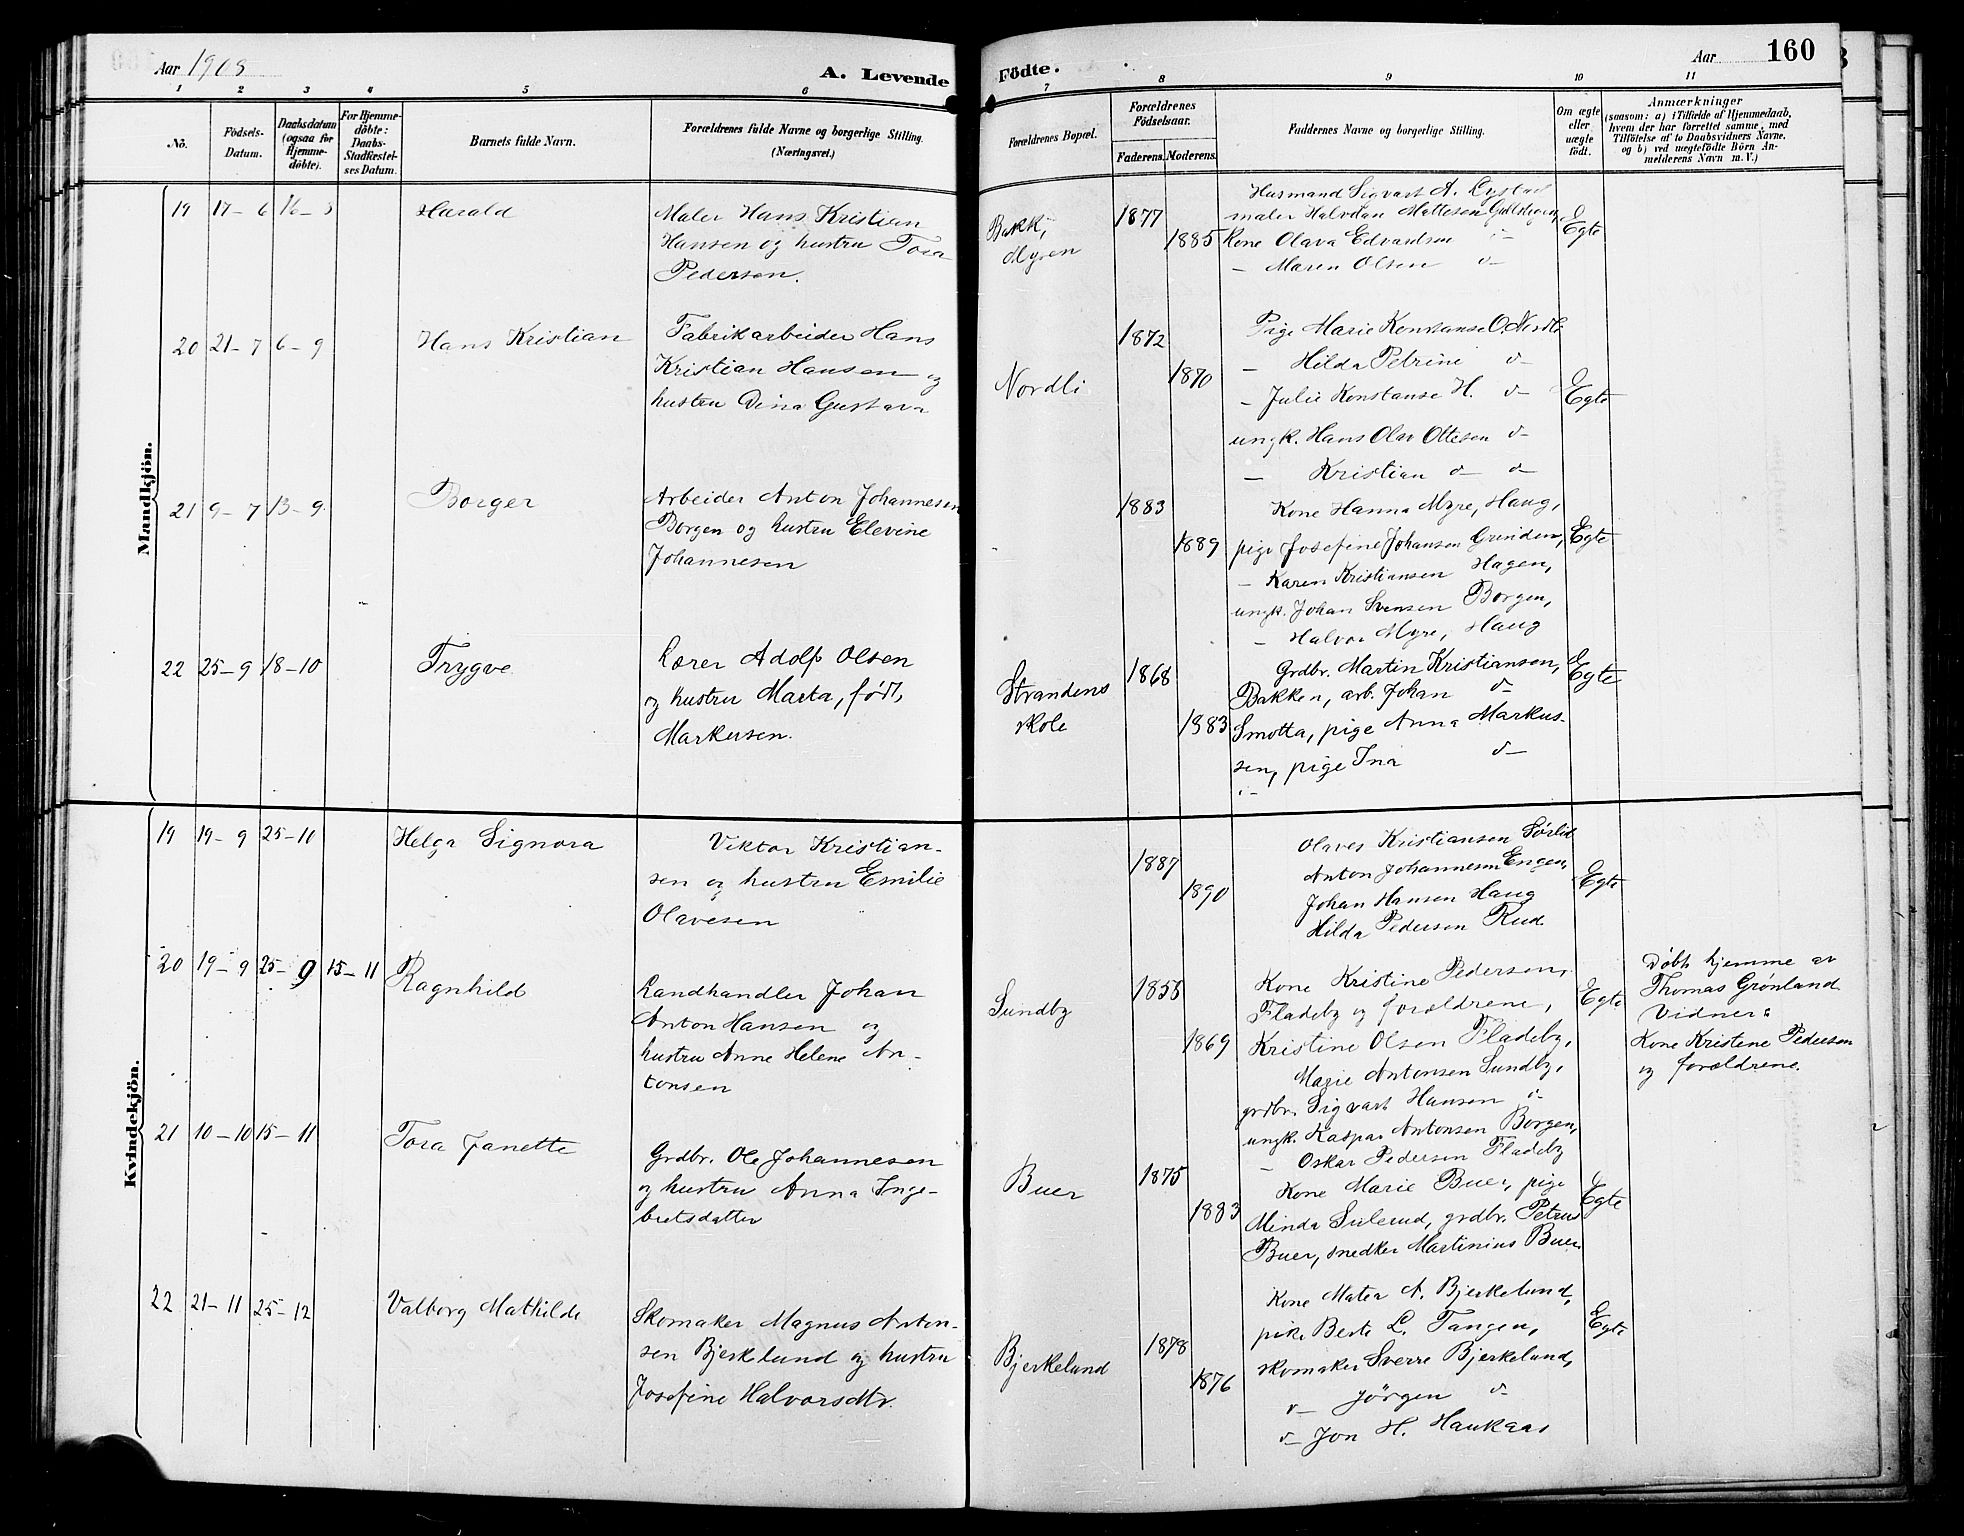 Aar 1908
A. Levende
Fødte.
Aar
160
1 2 3 4 5 6 7 8 9 10 11
No.
Fødsels-
Datum.
Daabsdatum
(ogsaa for
Hjemme-
döbte).
For Hjemme-
döbte:
Daabs-
Stadfæstel-
ses Datum.
Barnets fulde Navn.
Forældrenes fulde Navne og borgerlige Stilling.
(Næringsvei.)
Forældrenes Bopæl.
Forældrenes
Födselsaar.
Faderens. Moderens.
Faddernes Navne og borgerlige Stilling.
Om ægte
eller
uægte
født.
Anmærkninger
(saasom: a) i Tilfælde af Hjemmedaab,
hvem der har forrettet samme, med
Tilföielse af to Daabsvidners Navne,
og b) ved uægtefödte Börn An-
melderens Navn m. V.)
Mandkjön.
19 17-6 16-8 Harald
Maler Hans Kristian
Hansen og hustru Tora
Pedersen.
Bakk,
Myren
1877
1885
Husmand Sigvart A.
maler Halvdan Mattesen
Kone Olava Edvardsen
- Maren Olsen d-
Egte
20 21-7 6-9 Hans Kristian
Fabrikarbeider Hans
Kristian Hansen og
hustru Dina Gustava
Nordli
1872
1870
Pige Marie Konstanse O. Nordli
- Hilda Petrine d-
- Julie Konstanse H. d-
ungk. Hans Olav Ottesen d-
- Kristian d- d-
Egte
21 9-7 13-9 Borger
Arbeider Anton Johannesen
Borgen og hustru Elevine
Johannesen
1883
1889
Kone Hanna Myre, Haug,
pige Josefine Johansen Grinden,
- Karen Kristiansen Hagen,
ungk. Johan Svensen Borgen,
- Halvor Myre, Haug
Egte
22 25-9 18-10 Trygve
Lærer Adolf Olsen
og hustru Marta, født
Markusen.
Strandens
skole
1868
1883
Grdbr. Martin Kristiansen,
Bakken, arb. Johan d-
Smotta, pige Anna Markus-
sen, pige Ina d-
Egte
Kvindekjön.
19 19-9 25-11 Helga Signora
Viktor Kristian-
sen og hustru Emilie
Olavesen
1887
1890
Olaves Kristiansen Sørlid
Anton Johannesen Engen,
Johan Hansen Haug
Hilda Pedersen Rud.
Egte
20 19-9 25-9 15-11 Ragnhild
Landhandler Johan
Anton Hansen og
hustru Anne Helene An-
tonsen
Sundby
1855
1869
Kone Kristine Pedersen,
Fladeby og forældrene,
Kristine Olsen Fladeby,
Marie Antonsen Sundby,
grdbr. Sigvart Hansen d-
ungk. Kaspar Antonsen Borgen,
- Oskar Pedersen Fladeby
Egte
Døbt hjemme av
Thomas Grønland
Vidner:
Kone Kristene Pedersen
og forældrene.
21 10-10 15-11 Tora Janette
Grdbr. Ole Johannesen
og hustru Anna Inge-
bretsdatter
Buer
1875
1883
Kone Marie Buer, pige
Minda Sulerud, grdbr. Petrus
Buer, snedker Martinius Buer.
Egte
22 21-11 25-12 Valborg Mathilde
Skomaker Magnus Anton-
sen Bjerkelund og hustru
Josefine Halvorsdtr.
Bjerkelund
1878
1876
Kone Matea A. Bjerkelund,
pike Berte L. Tangen,
skomaker Sverre Bjerkelund,
d- Jörgen d-
d- Jon H. Haukaas
Egte